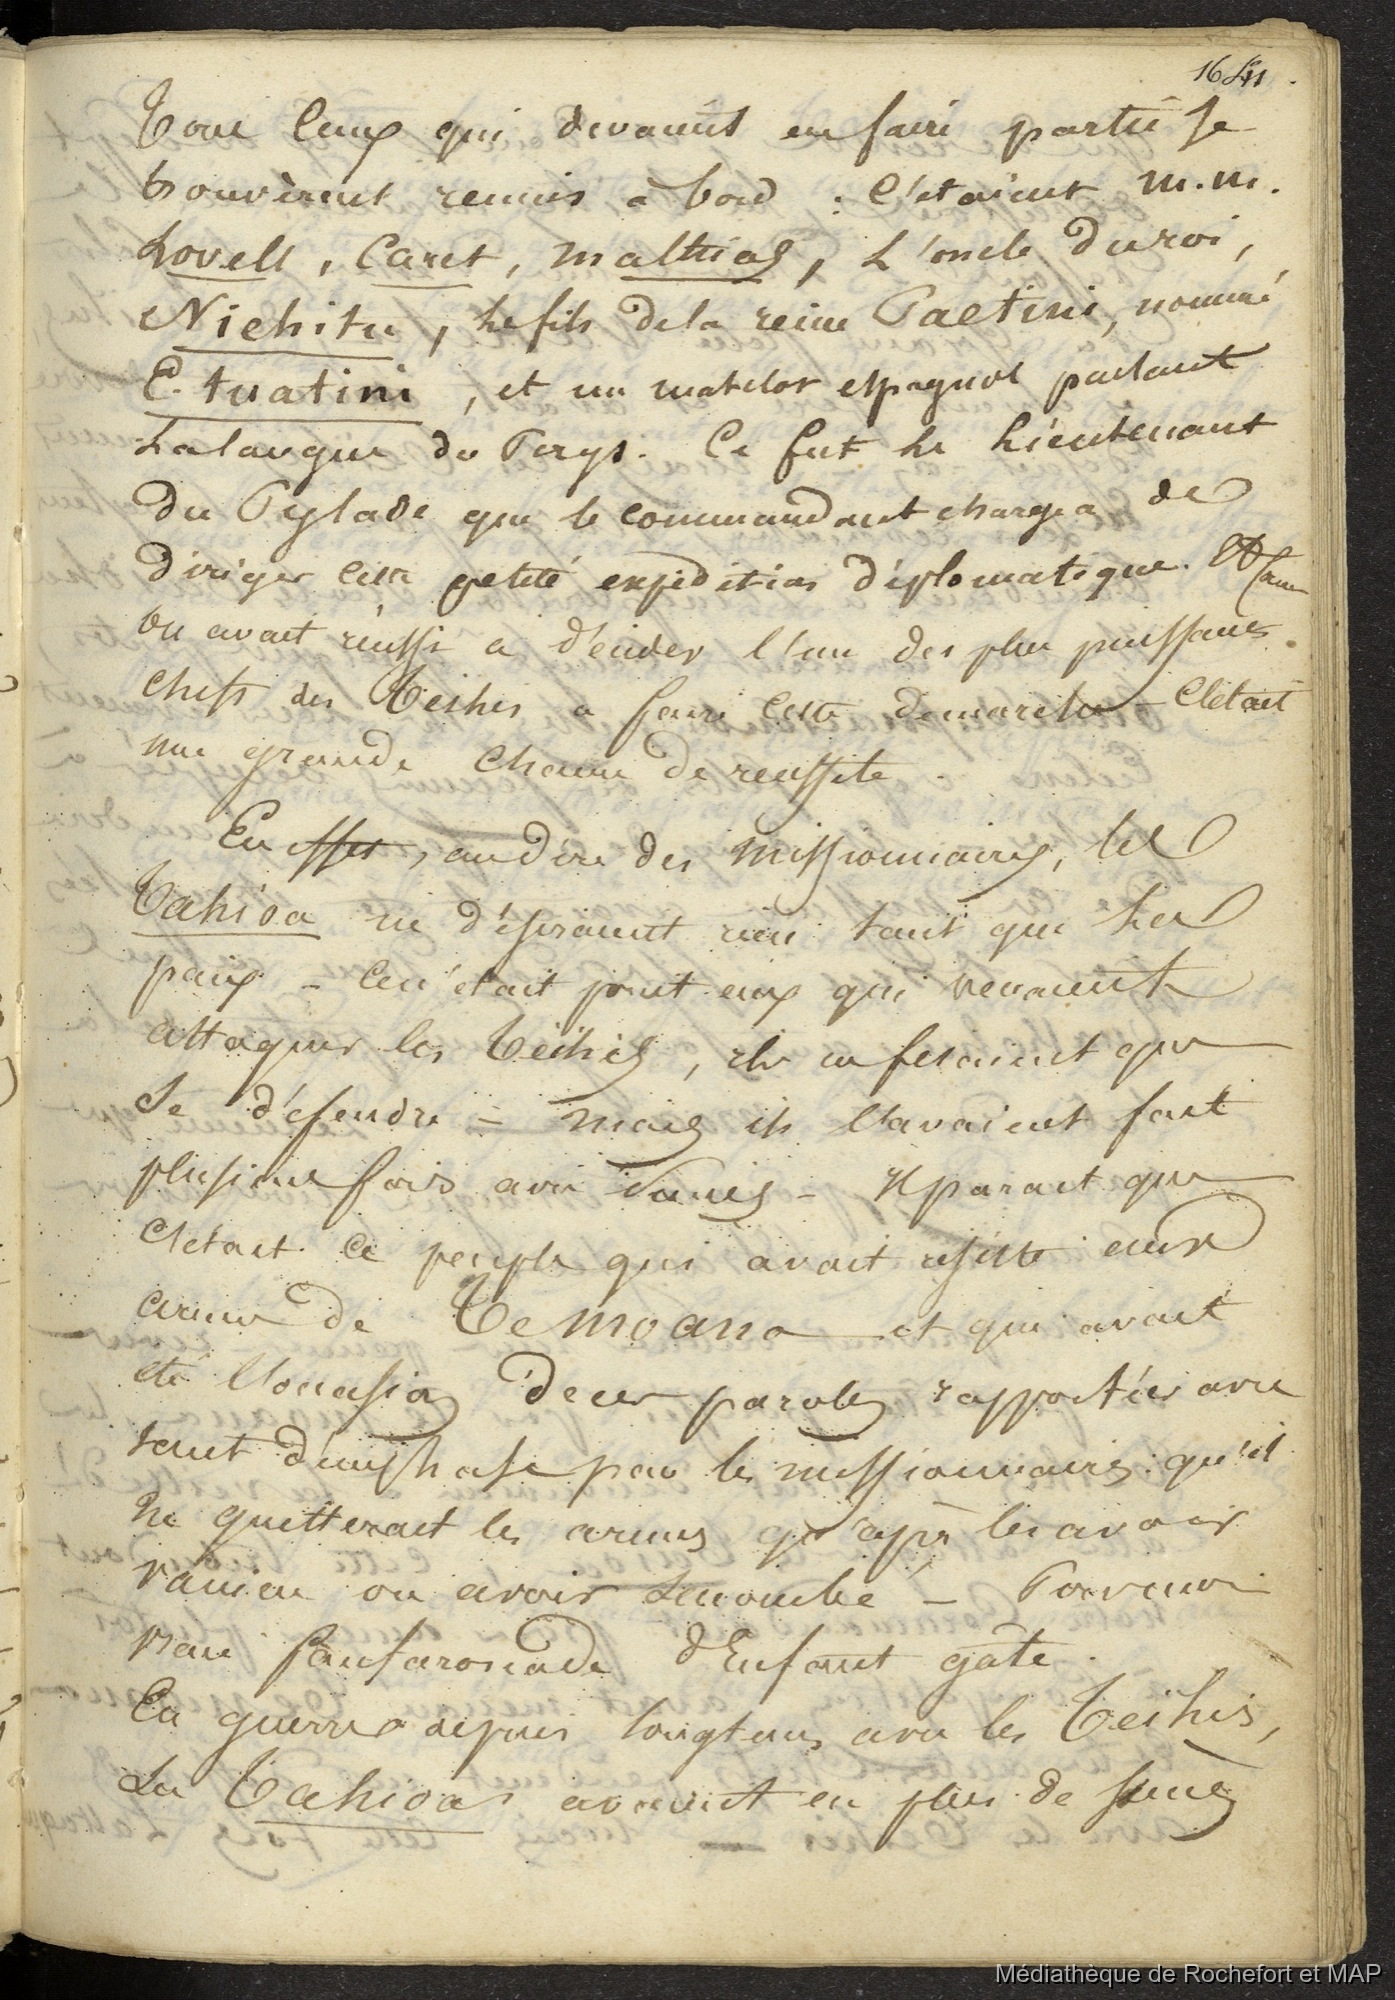 Tous ceux qui devaient en faire partie se
trouvèrent reunis à bord : c'etaient M.M.
Lovell, Caret, Mathias, l'oncle du roi,
Niehitu, le fils de la reine Paetini, nommé
E. tuatini, et un matelot espagnol parlant
la langue du Pays. Ce fut le lieutenant
du Pylade que le commandant chargea de
diriger cette petite expedition diplomatique.
on avait réussi a décider l'un des plus puissans
chefs des Teihis a faire cette demarche - C'était
une grande chance de reussite.
En effet, au dire des missionnaires, les
Tahioa ne désiraient rien tant que la
paix - Ce n'était point eux qui venaient
attaquer les Teihis, ils ne fesaient que
se défendre - mais ils l'avaient fait
plusieurs fois avec succès - Il parait que
c'etait ce peuple qui avait résisté aux
armes de Temoana et qui avait
été l'occasion de ces paroles rapportées avec
tant d'emphase par les missionnaires: qu'il
ne quitterait les armes qu'après les avoir
vaincu ou avoir succombé -
vraie fanfaronade d'Enfant gâté.
En guerre depuis longtems avec les Teihis,
Les Tahioas avaient en plus de